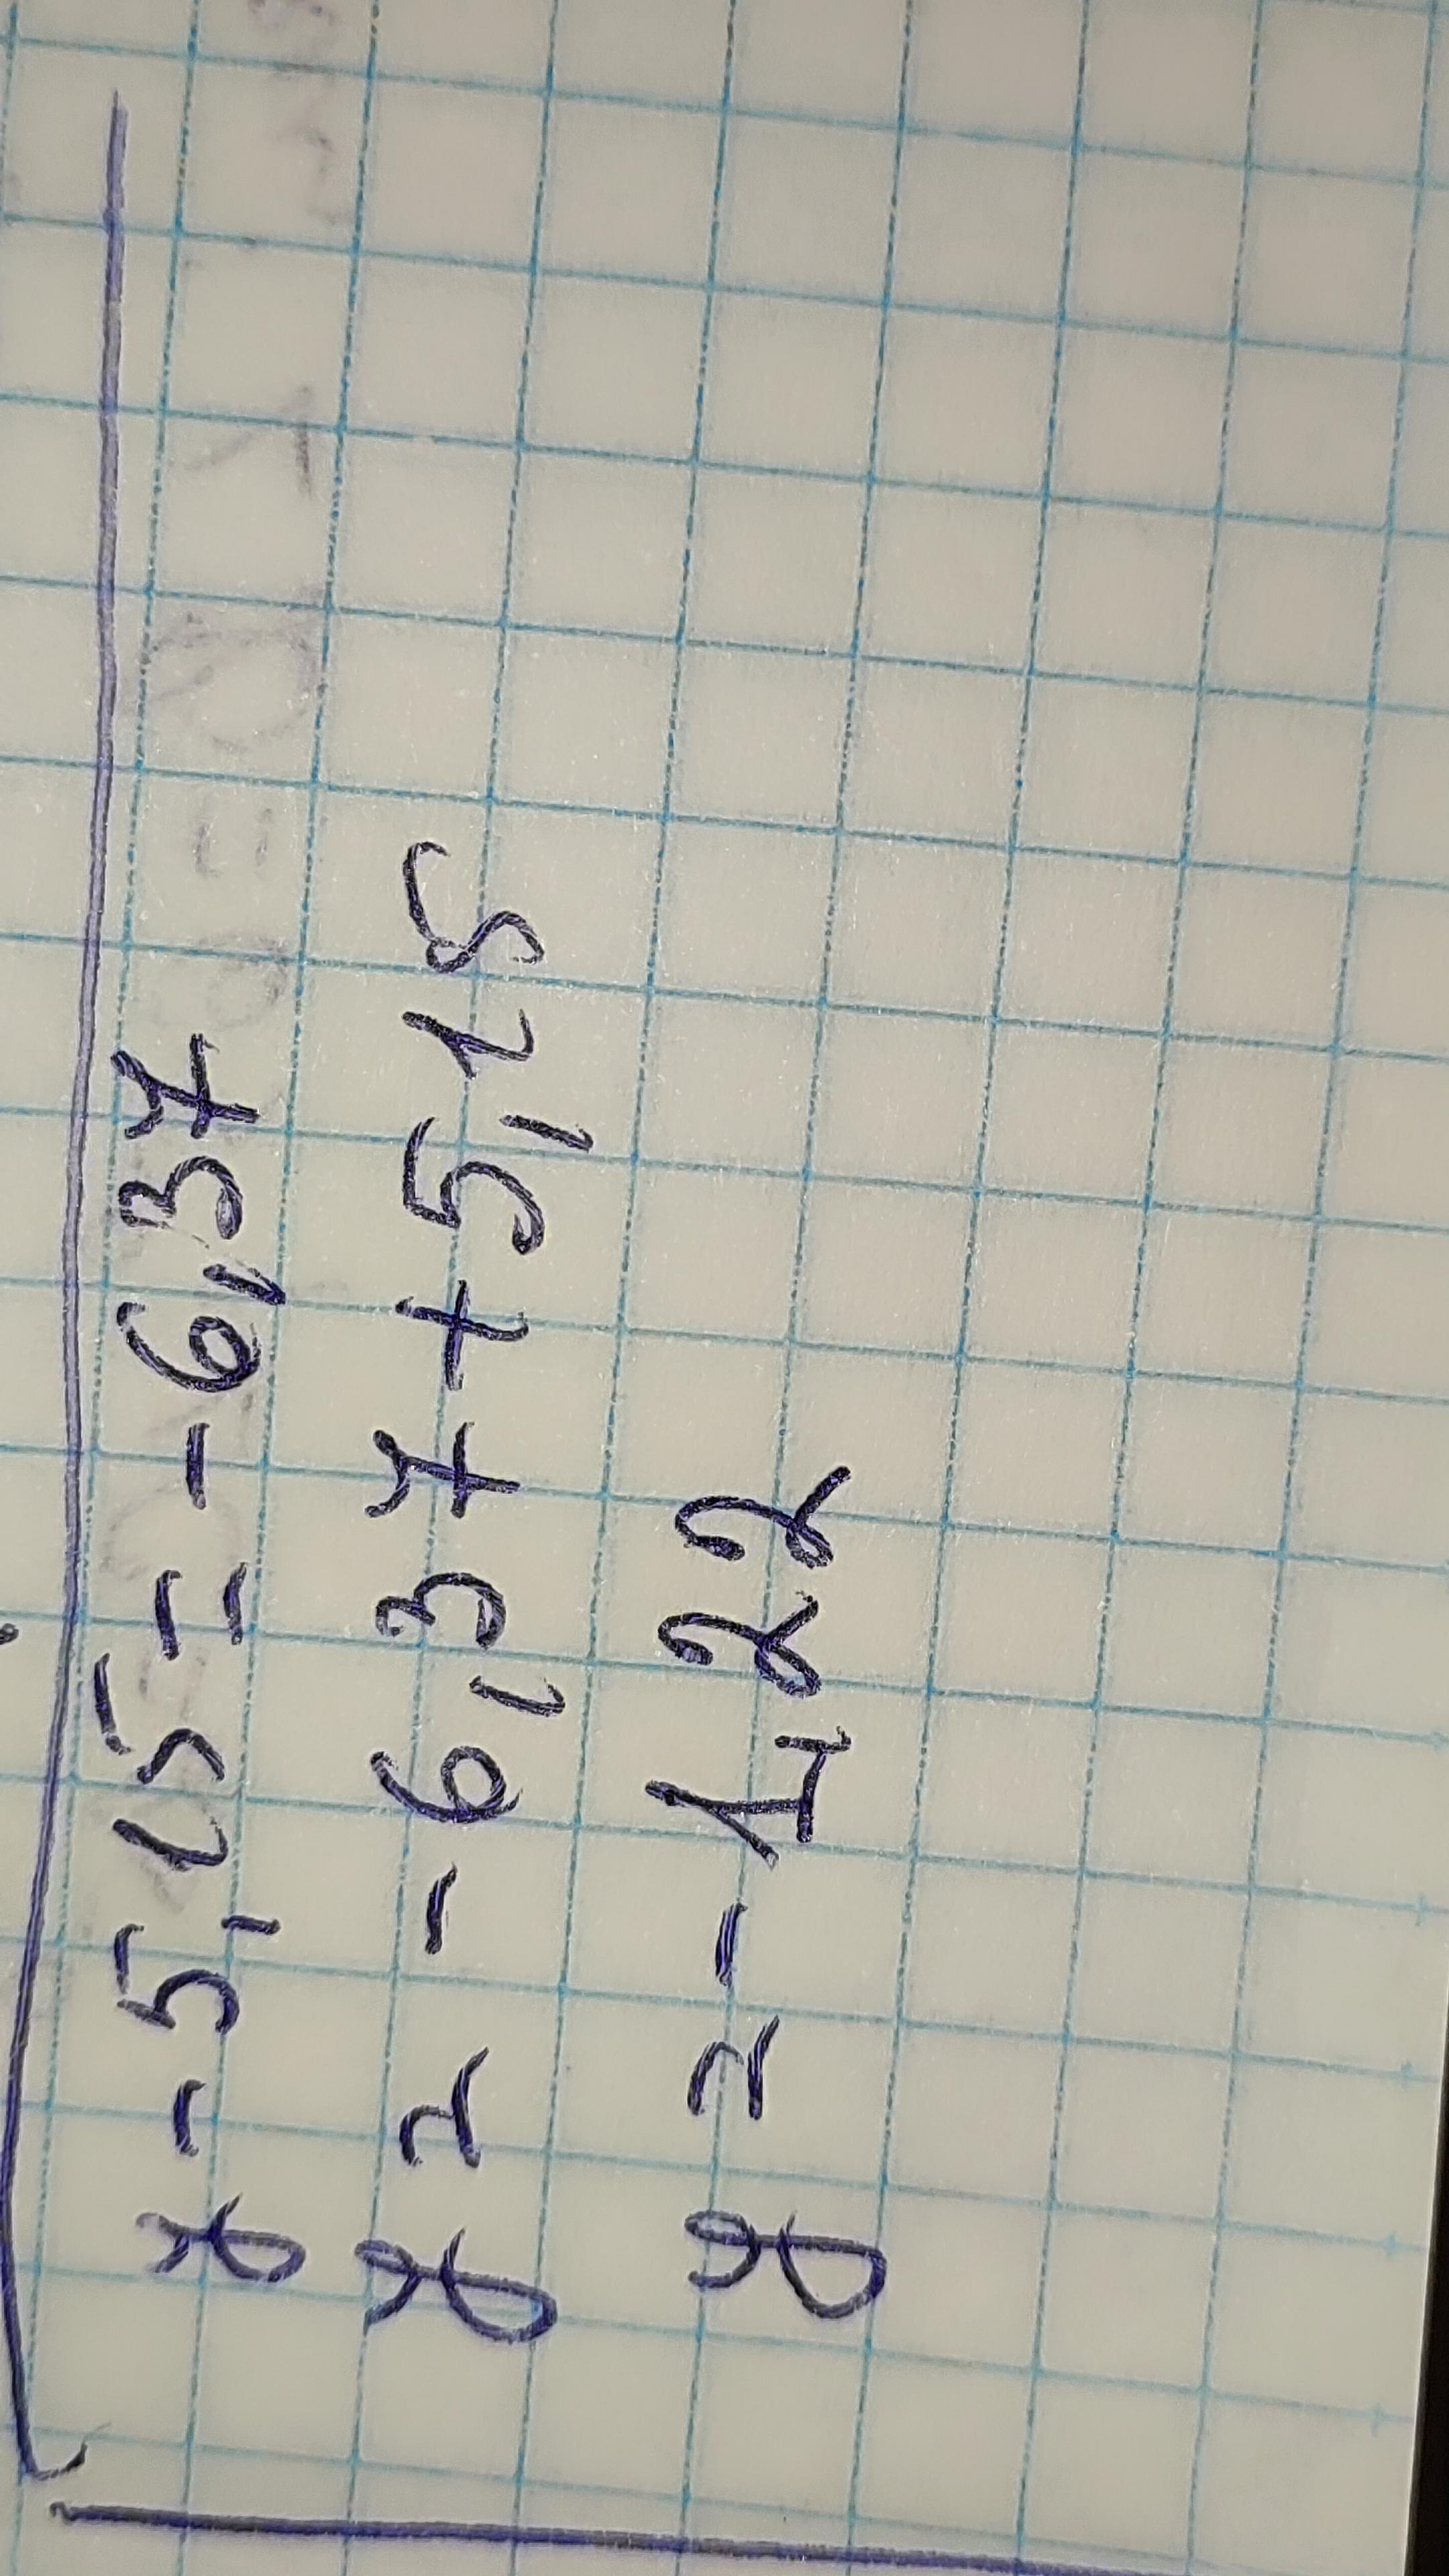 x - 5,15 = - 6,37
x = - 6,37 + 5,15
x = - 1,22